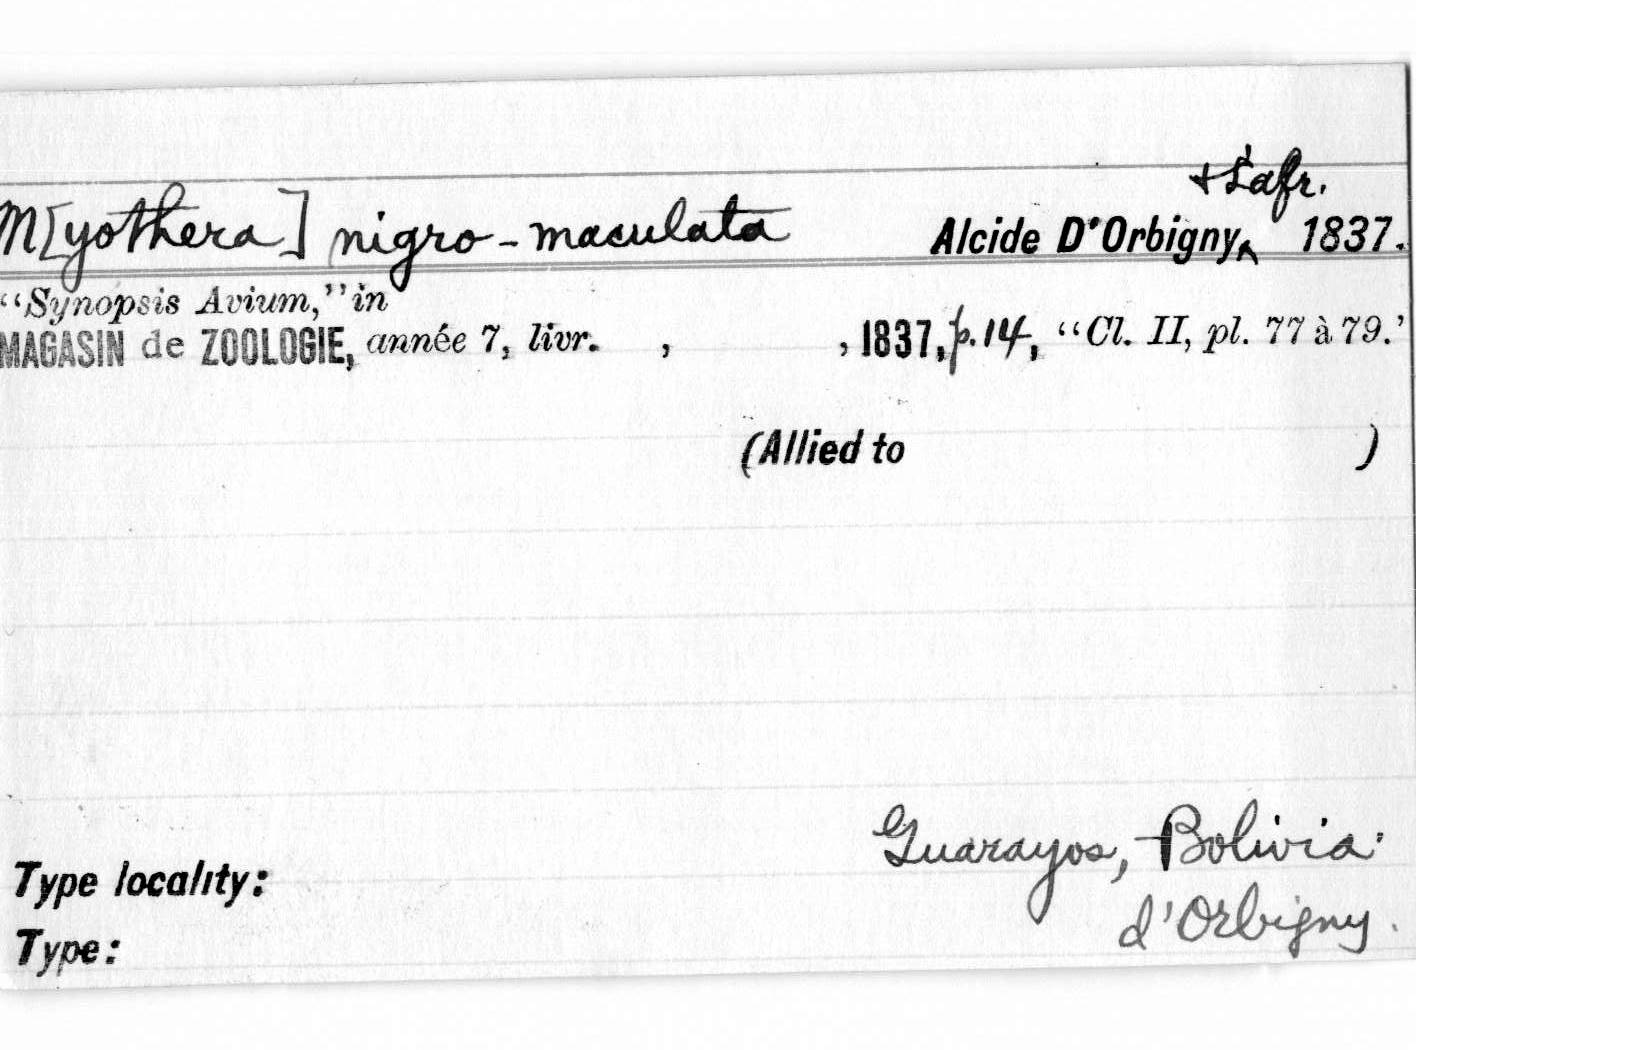 & Lafr.
M[yothera] nigro-maculata Alcide D'Orbigny, 1837.
"Synopsis Avium," in
MAGASIN de ZOOLOGIE, année 7, livr. , , 1837, p. 14, "Cl. II, pl. 77 à 79.'
(Allied to )
Guarayos, Bolivia.
Type locality:
d'Orbigny.
Type: